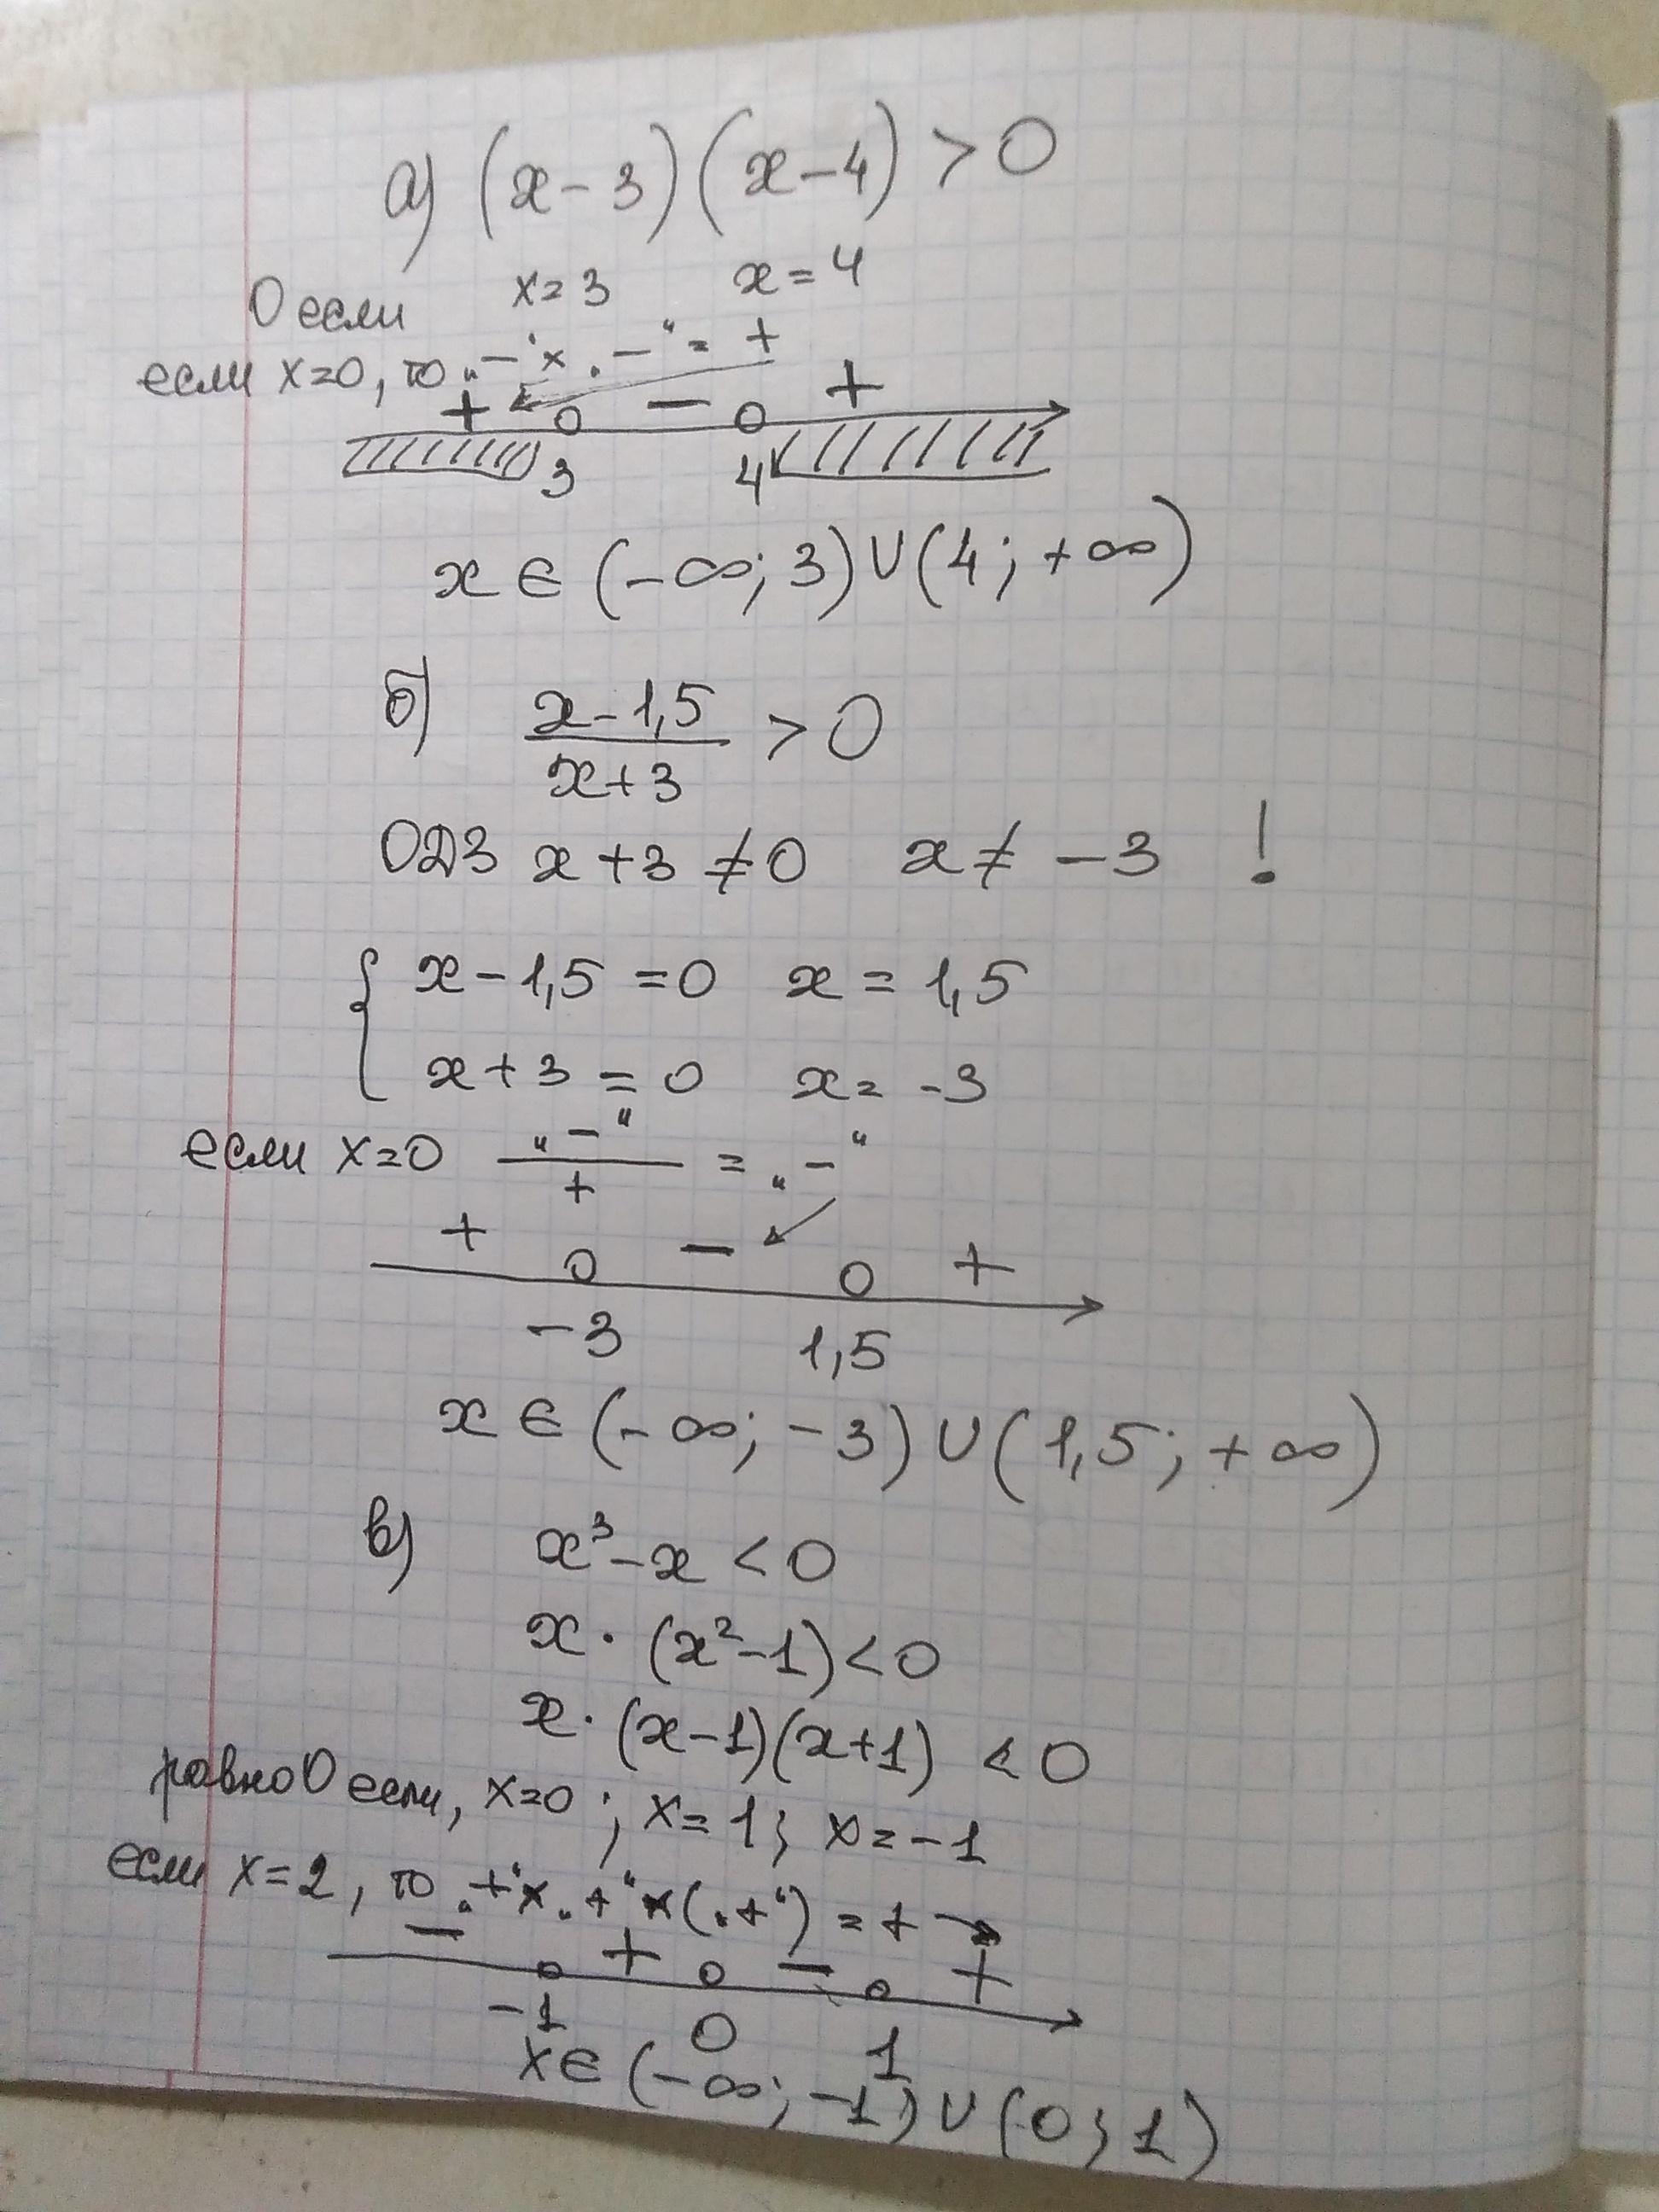 а) (x-3)(x-4)>0
0 если x=3 x=4
если x=0, то „-“ x „-“ = +
+ - +
3 4
x ∈ (-∞; 3) ∪ (4; +∞)
б) (x-1,5)/(x+3) > 0
ОДЗ x+3≠0 x≠-3 !
{ x-1,5=0 x=1,5
x+3=0 x=-3
если x=0 „-“/+ = „-“
+ - +
-3 1,5
x ∈ (-∞; -3) ∪ (1,5; +∞)
в) x³-x<0
x·(x²-1)<0
x·(x-1)(x+1)<0
равно 0 если, x=0; x=1; x=-1
если x=2, то „+“ x „+“ x („+“) = + →
- + - +
-1 0 1
x∈(-∞; -1) ∪ (0; 1)